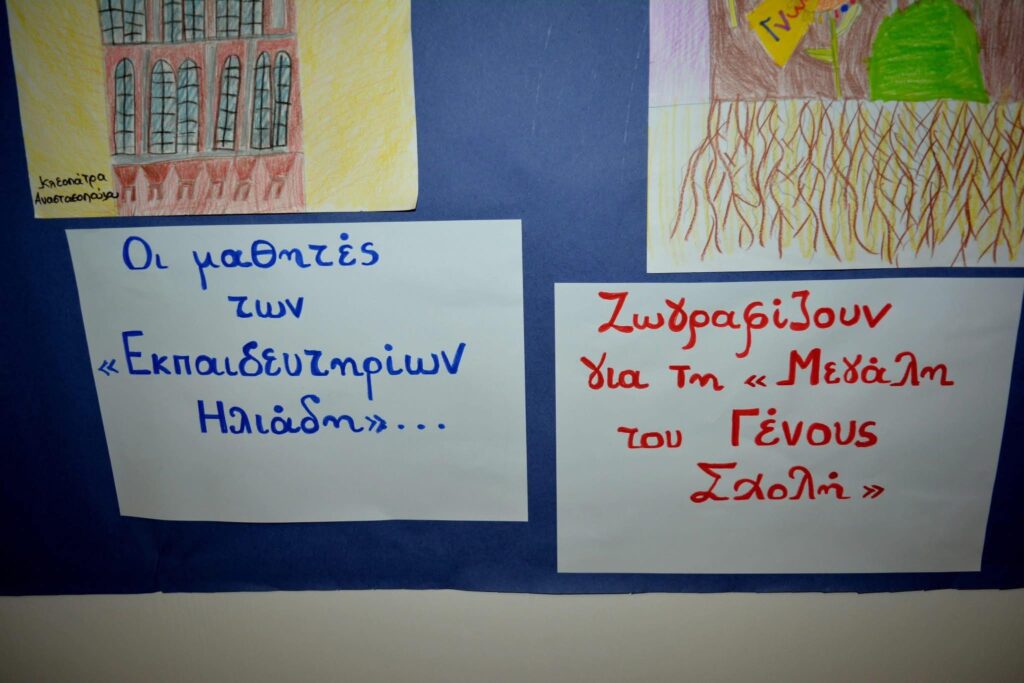 Γνώ
Κλεοπάτρα
Αναστασοπούλου
Οι μαθητές
των
«Εκπαιδευτηρίων
Ηλιάδη»...
Ζωγραφίζουν
για τη «Μεγάλη
του Γένους
Σχολή»